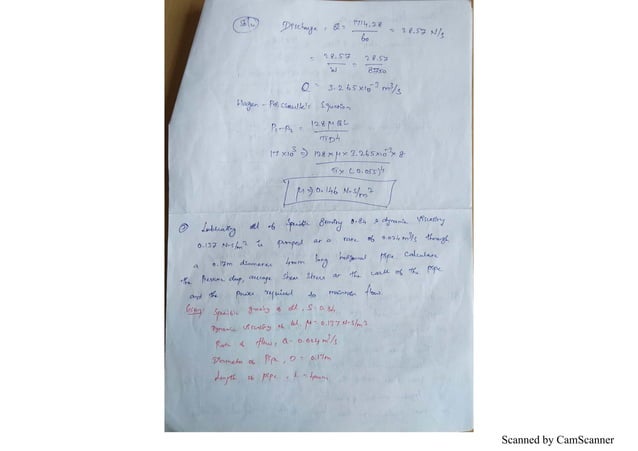 Discharge, Q = 1714.28 / 60 = 28.57 N/s
= 28.57 / W = 28.57 / 8750
Q = 3.265×10⁻³ m³/s
Hagen - Poiseuille's Equation
P₁-P₂ = 128 μ Q L / π D⁴
17×10³ => 128×μ×3.265×10⁻³×8 / π×(0.055)⁴
μ => 0.146 N-s/m²
Lubricating oil of Specific Gravity 0.84 & dynamic viscosity
0.137 N-s/m² is pumped at a rate of 0.024m³/s through
a 0.17m diameter 4mm long horizontal pipe. Calculate
the Pressure drop, average Shear Stress at the wall of the pipe
and the power required to maintain flow.
Given: Specific gravity of oil, S = 0.84
Dynamic Viscosity of oil, μ = 0.137 N-S/m²
Rate of flow, Q = 0.024 m³/s
Diameter of Pipe, D = 0.17m
Length of pipe, L =
Scanned by CamScanner